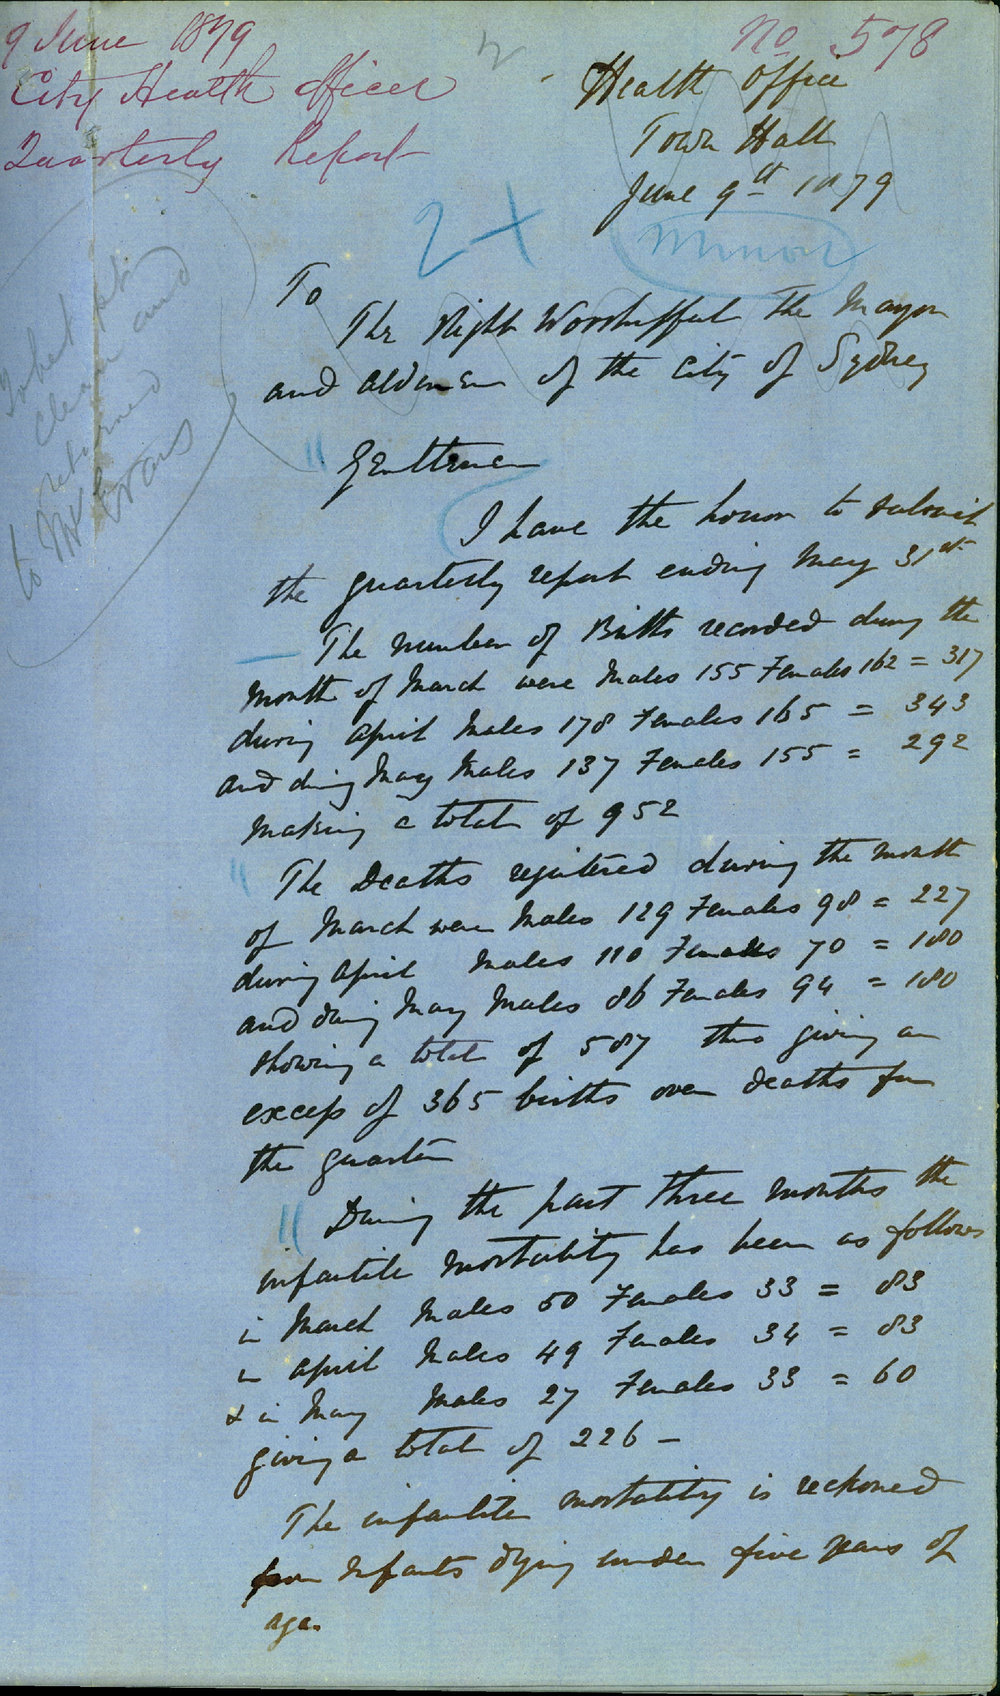 9 June 1879
City Health Officer
Quarterly Report
No 578
Health Office
Town Hall
June 9th 1879
2
Minor
To
The Right Worshipful The Mayor
and Aldermen of the City of Sydney
to be kept
clean and
returned
to Mr Evans
Gentlemen
I have the honor to submit
the quarterly report ending May 31st
The number of Births recorded during the
month of March were Males 155 Females 162 = 317
during April Males 178 Females 165 = 343
and during May Males 137 Females 155 = 292
making a total of 952
The Deaths registered during the month
of March were Males 129 Females 98 = 227
during April Males 110 Females 70 = 180
and during May Males 86 Females 94 = 180
showing a total of 587 thus giving an
excess of 365 births over deaths for
the quarter
During the past three months the
infantile mortality has been as follows
in March Males 50 Females 33 = 83
in April Males 49 Females 34 = 83
& in May Males 27 Females 33 = 60
giving a total of 226 -
The infantile mortality is reckoned
from Infants dying under five years of
age.